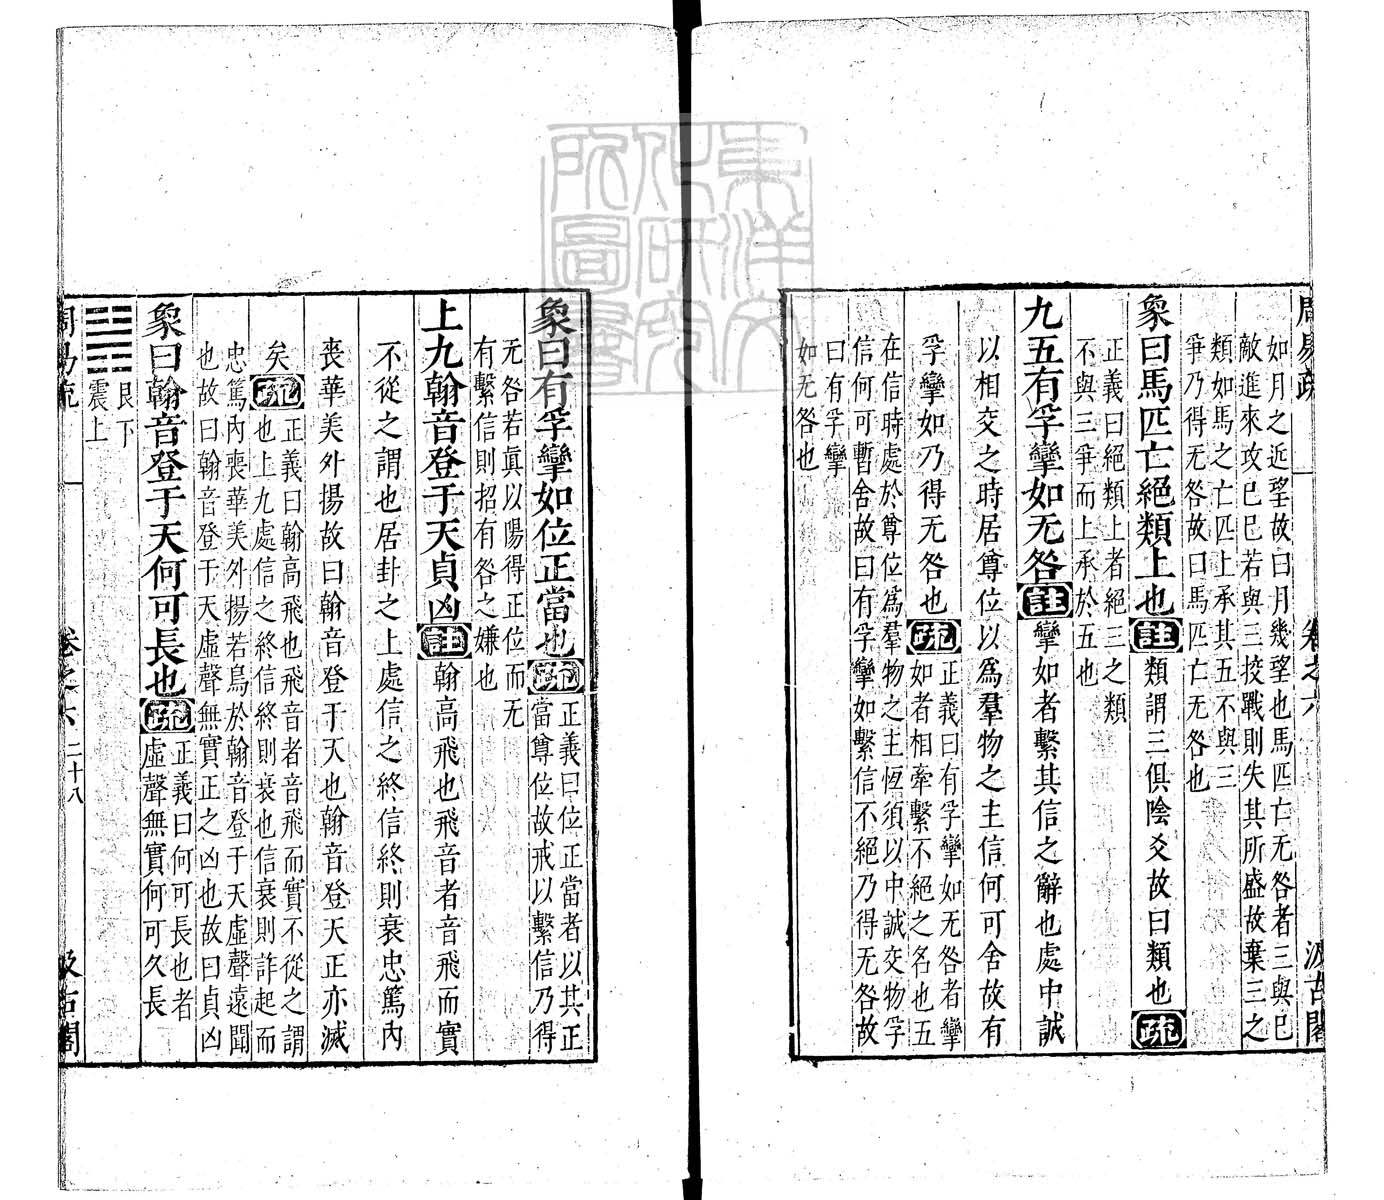 周易疏　卷之六　汲古閣
如月之近望故曰月幾望也馬匹亡无咎者三與己
敵進來攻己己若與三挍戰則失其所盛故棄三之
類如馬之亡匹上承其五不與三
爭乃得无咎故曰馬匹亡无咎也
象曰馬匹亡絕類上也註類謂三俱陰爻故曰類也疏
正義曰絕類上者絕三之類
不與三爭而上承於五也
九五有孚攣如无咎註攣如者繫其信之辭也處中誠
以相交之時居尊位以爲羣物之主信何可舍故有
孚攣如乃得无咎也疏正義曰有孚攣如无咎者攣
如者相牽繫不絕之名也五
在信時處於尊位爲羣物之主恆須以中誠交物孚
信何可暫舍故曰有孚攣如繫信不絕乃得无咎故
曰有孚攣
如无咎也
象曰有孚攣如位正當也疏正義曰位正當者以其正
當尊位故戒以繫信乃得
无咎若眞以陽得正位而无
有繫信則招有咎之嫌也
上九翰音登于天貞凶註翰高飛也飛音者音飛而實
不從之謂也居卦之上處信之終信終則衰忠篤內
喪華美外揚故曰翰音登于天也翰音登天正亦滅
矣疏正義曰翰高飛也飛音者音飛而實不從之謂
也上九處信之終信終則衰也信衰則詐起而
忠篤內喪華美外揚若鳥於翰音登于天虛聲遠聞
也故曰翰音登于天虛聲無實正之凶也故曰貞凶
象曰翰音登于天何可長也疏正義曰何可長也者
虛聲無實何可久長
艮下
震上
周易疏　卷之六　二十八　汲古閣